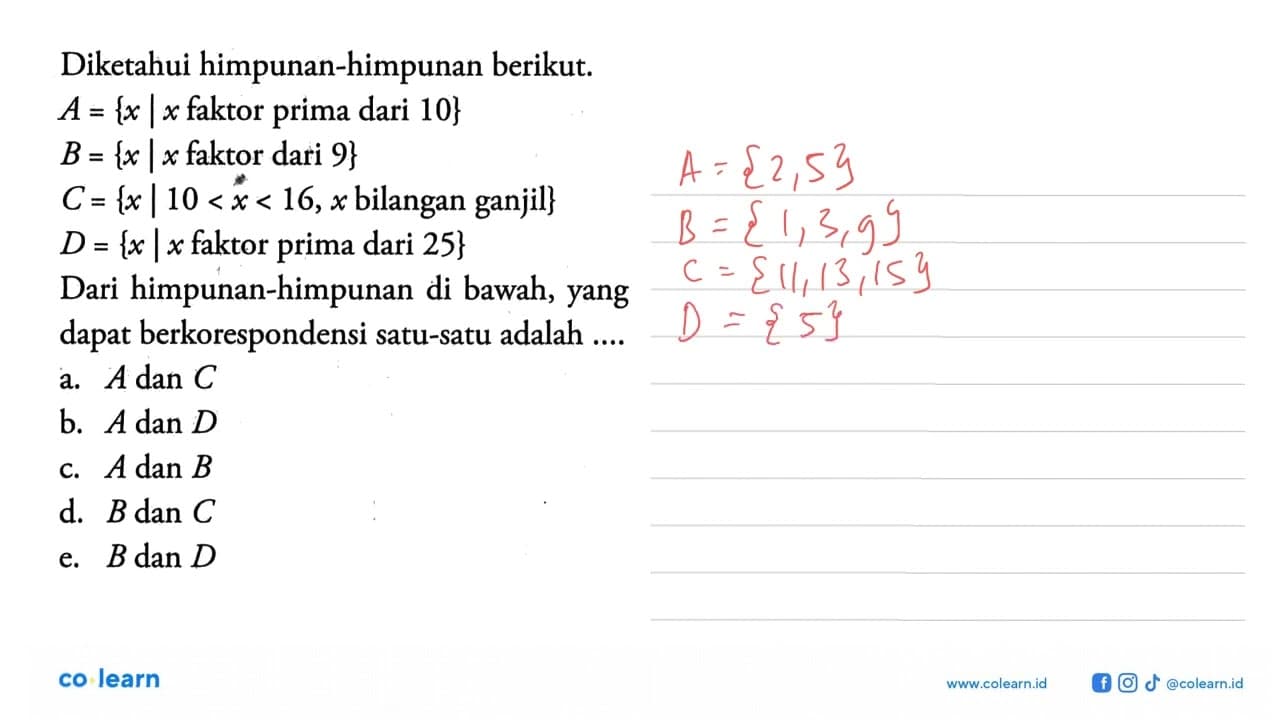 Diketahui himpunan-himpunan berikut.
A = {x | x faktor prima dari 10}
B = {x | x faktor dari 9}
C = {x | 10 < x < 16, x bilangan ganjil}
D = {x | x faktor prima dari 25}
Dari himpunan-himpunan di bawah, yang
dapat berkorespondensi satu-satu adalah ....
a. A dan C
b. A dan D
c. A dan B
d. B dan C
e. B dan D
A = {2,5}
B = {1,3,9}
C = {11,13,15}
D = {5}
co learn
www.colearn.id
@colearn.id